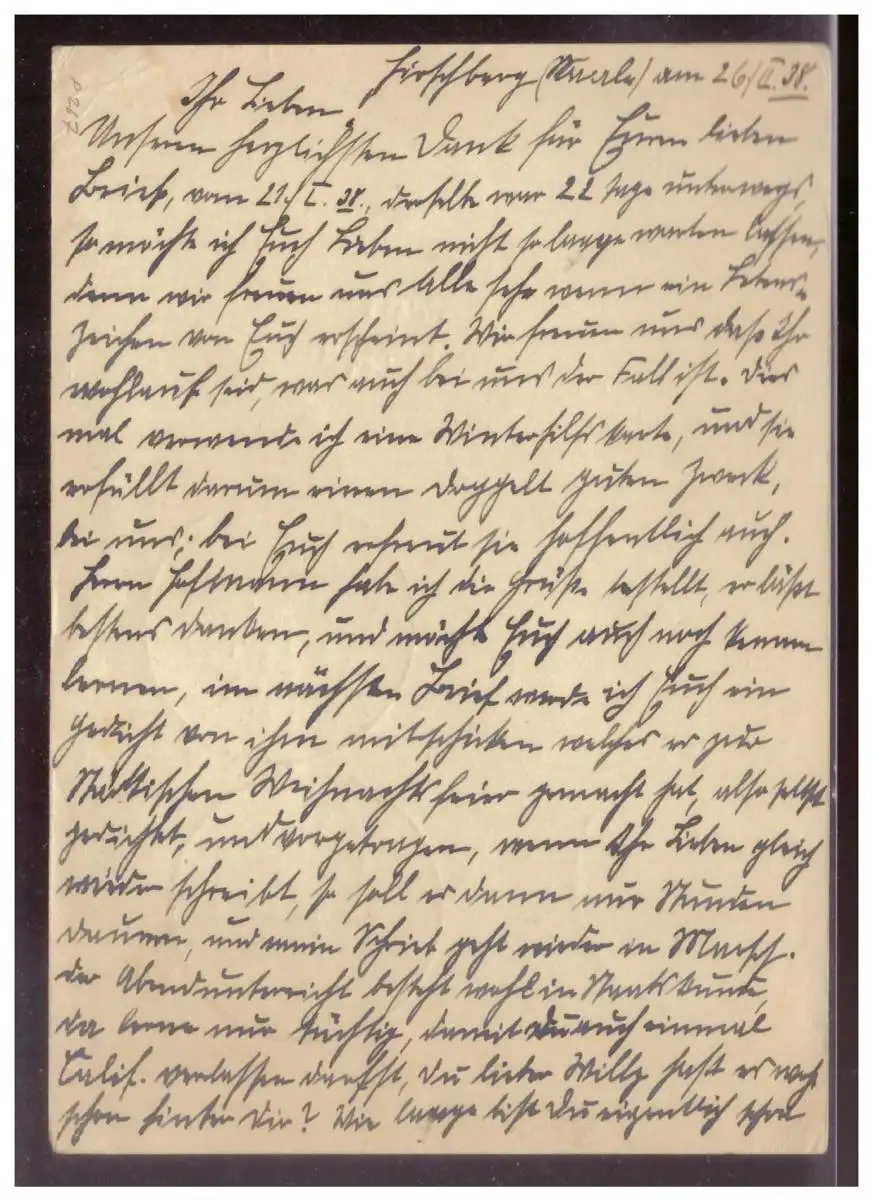 Hirschberg (Saale) am 26./II. 38.
Ihr Lieben
Unseren herzlichsten Dank für Euren lieben
Brief, vom 21./I. 38., derselbe war 22 Tage unterwegs,
so möchte ich Euch Lieben nicht so lange warten lassen,
denn wir freuen uns Alle sehr wenn ein Lebens-
zeichen von Euch erscheint. Wir freuen uns daß Ihr
wohlauf seid, was auch bei uns der Fall ist. Dies
mal verwende ich eine Winterhilfskarte, und sie
erfüllt darum einen doppelt guten Zweck,
bei uns; bei Euch erfreut sie hoffentlich auch.
Herrn Hoffmann habe ich die Grüße bestellt, er läßt
bestens danken, und möcht Euch auch noch kennen
lernen, im nächsten Brief werde ich Euch ein
Gedicht von ihm mitschicken welches er zur
Städtischen Weihnachtsfeier gemacht hat, also selbst
gedichtet, und vorgetragen, wenn Ihr Lieben gleich
wieder schreibt, so soll es dann nur Stunden
dauern, und mein Schrieb geht wieder in Marsch.
Der Abendunterricht besteht wohl in Staatskunde,
da lerne nur tüchtig, damit Du auch einmal
Calif. verlassen darfst, Du lieber Willy hast es wohl
schon hinter Dir? Wie lange bist Du eigentlich schon